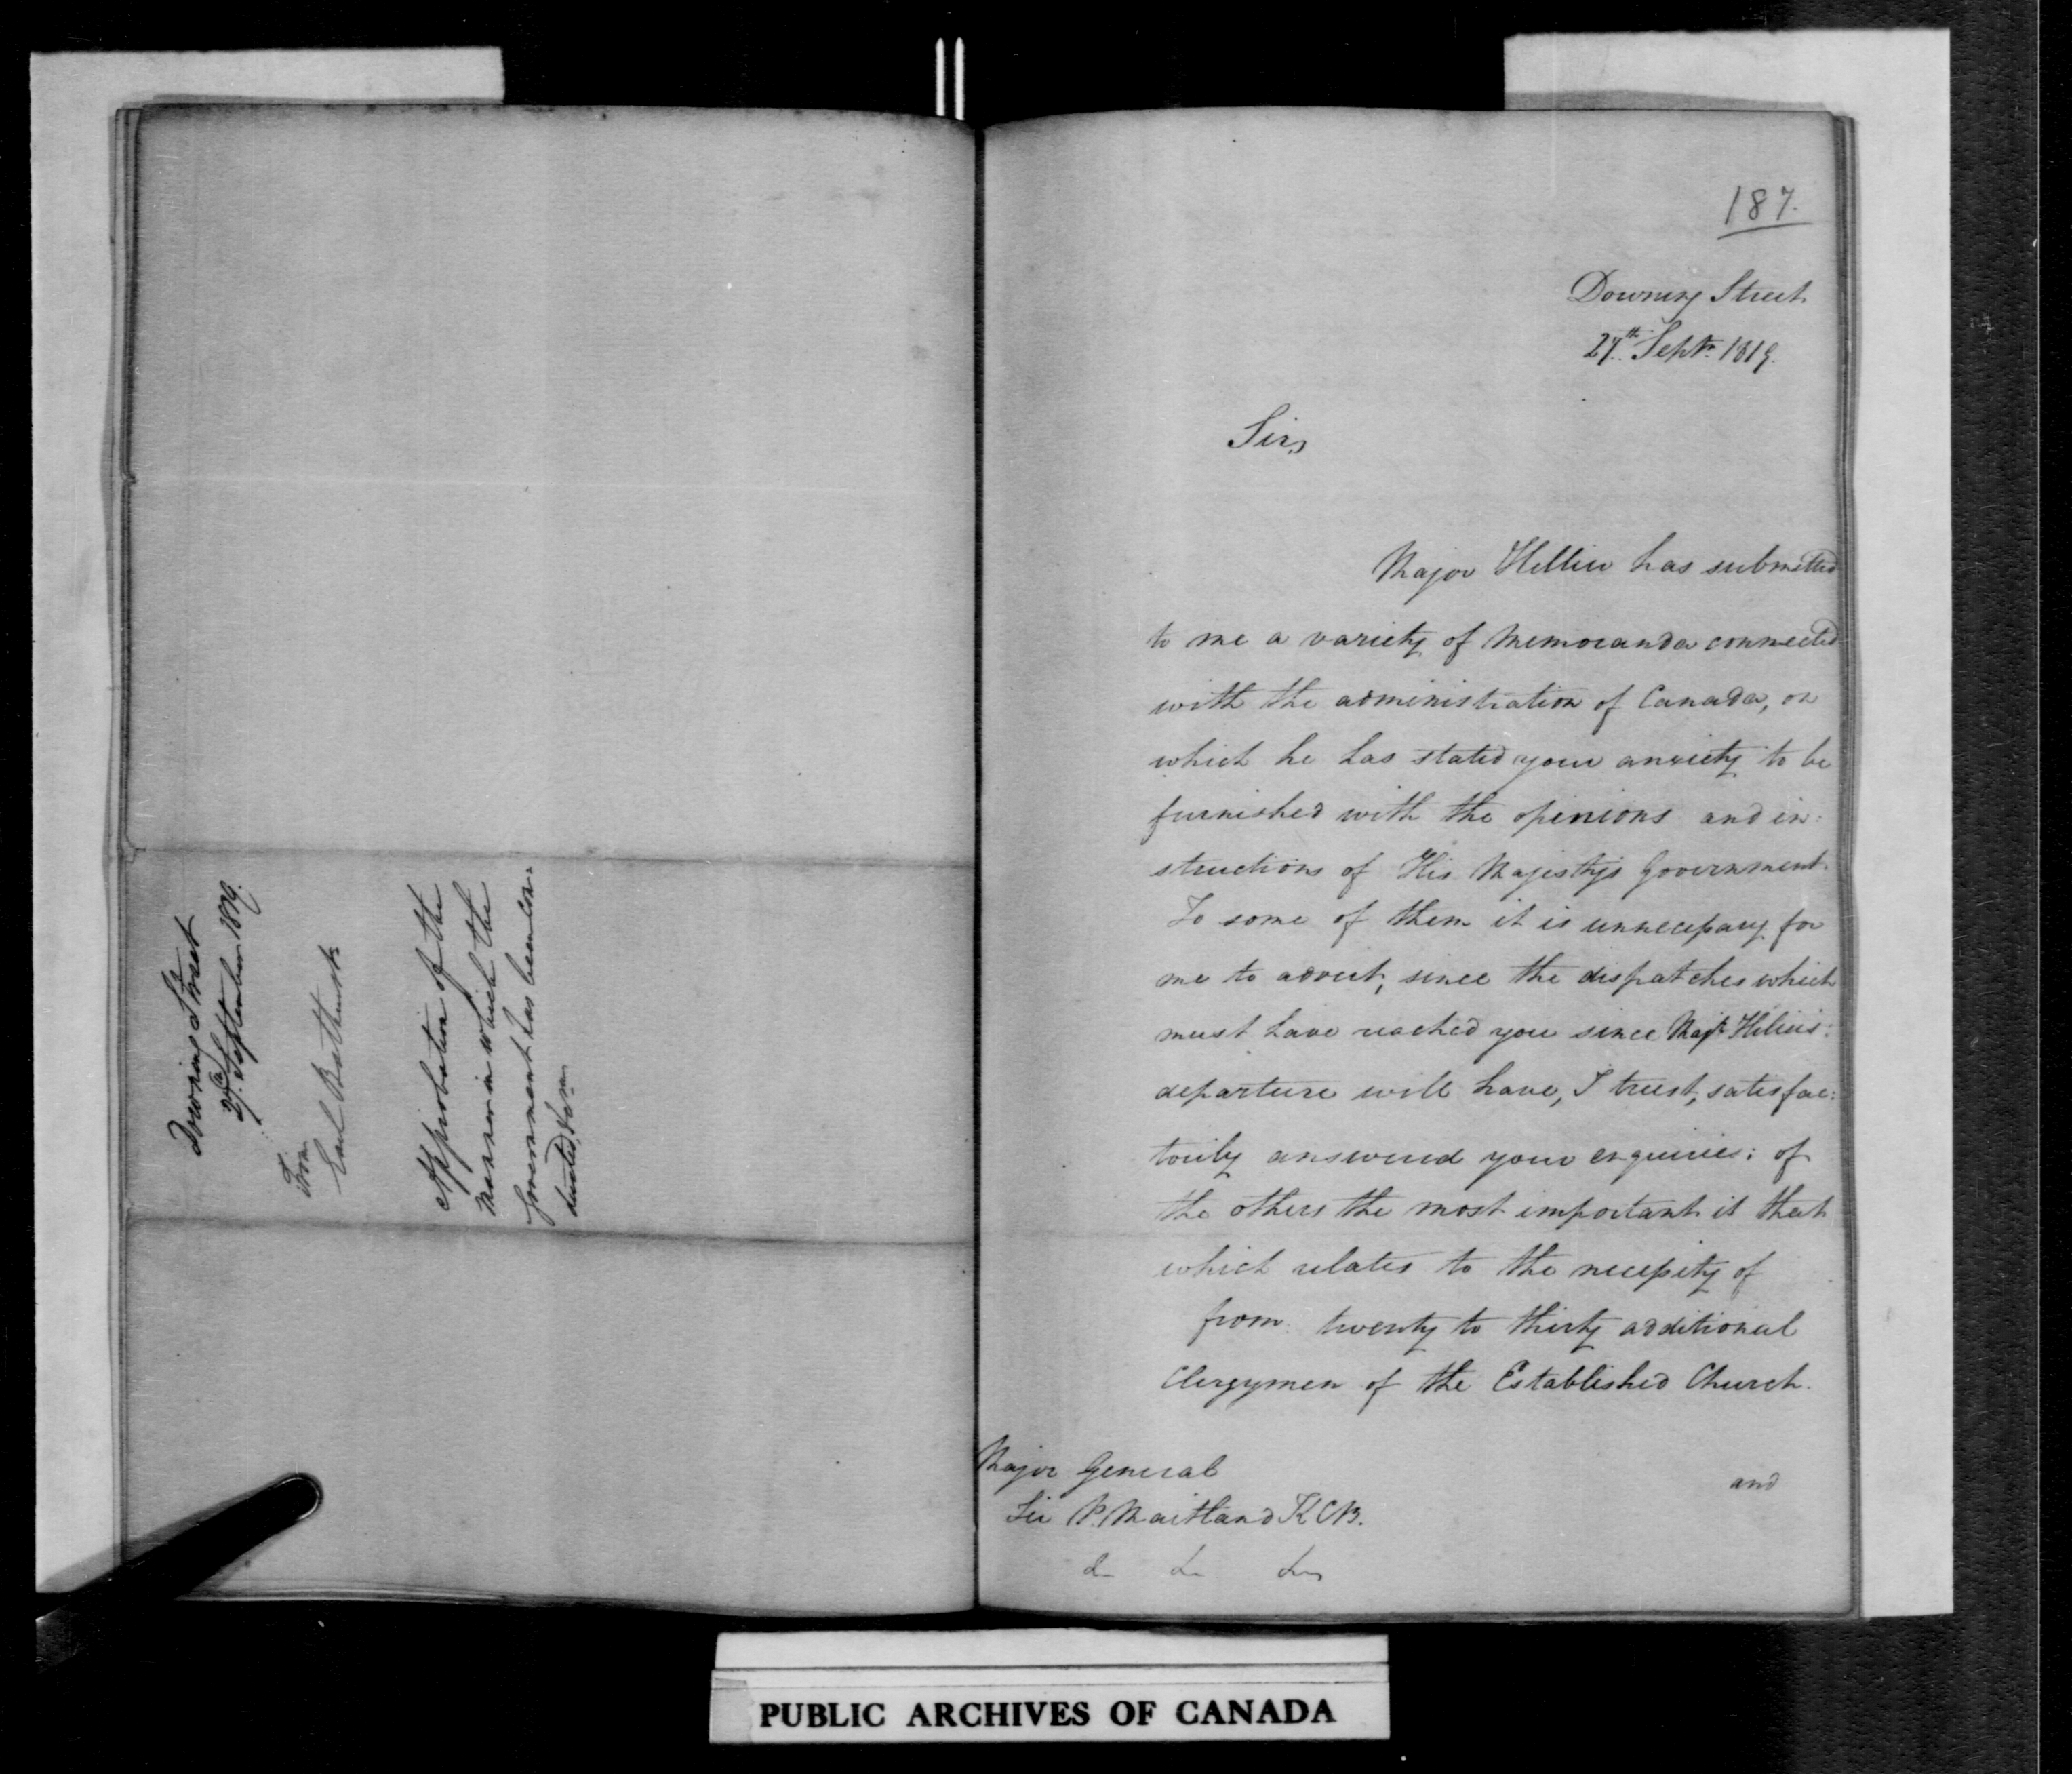 Downing Street
27th September 1819.
From
Earl Bathurst
Approbation of the
manner in which the
Government has been con:
ducted by him
187.
Downing Street
27th Septr. 1819.
Sir,
Major Hillier has submitted
to me a variety of Memoranda connected
with the administration of Canada, on
which he has stated your anxiety to be
furnished with the opinions and in:
structions of His Majesty's Government.
To some of them it is unnecessary for
me to advert, since the dispatches which
must have reached you since Majr. Hilliers
departure will have, I trust, satisfac:
torily answered your enquiries: of
the others the most important is that
which relates to the necessity of
from twenty to thirty additional
Clergymen of the Established Church.
and
Major General
Sir P. Maitland K.C.B.
&c &c &c
PUBLIC ARCHIVES OF CANADA